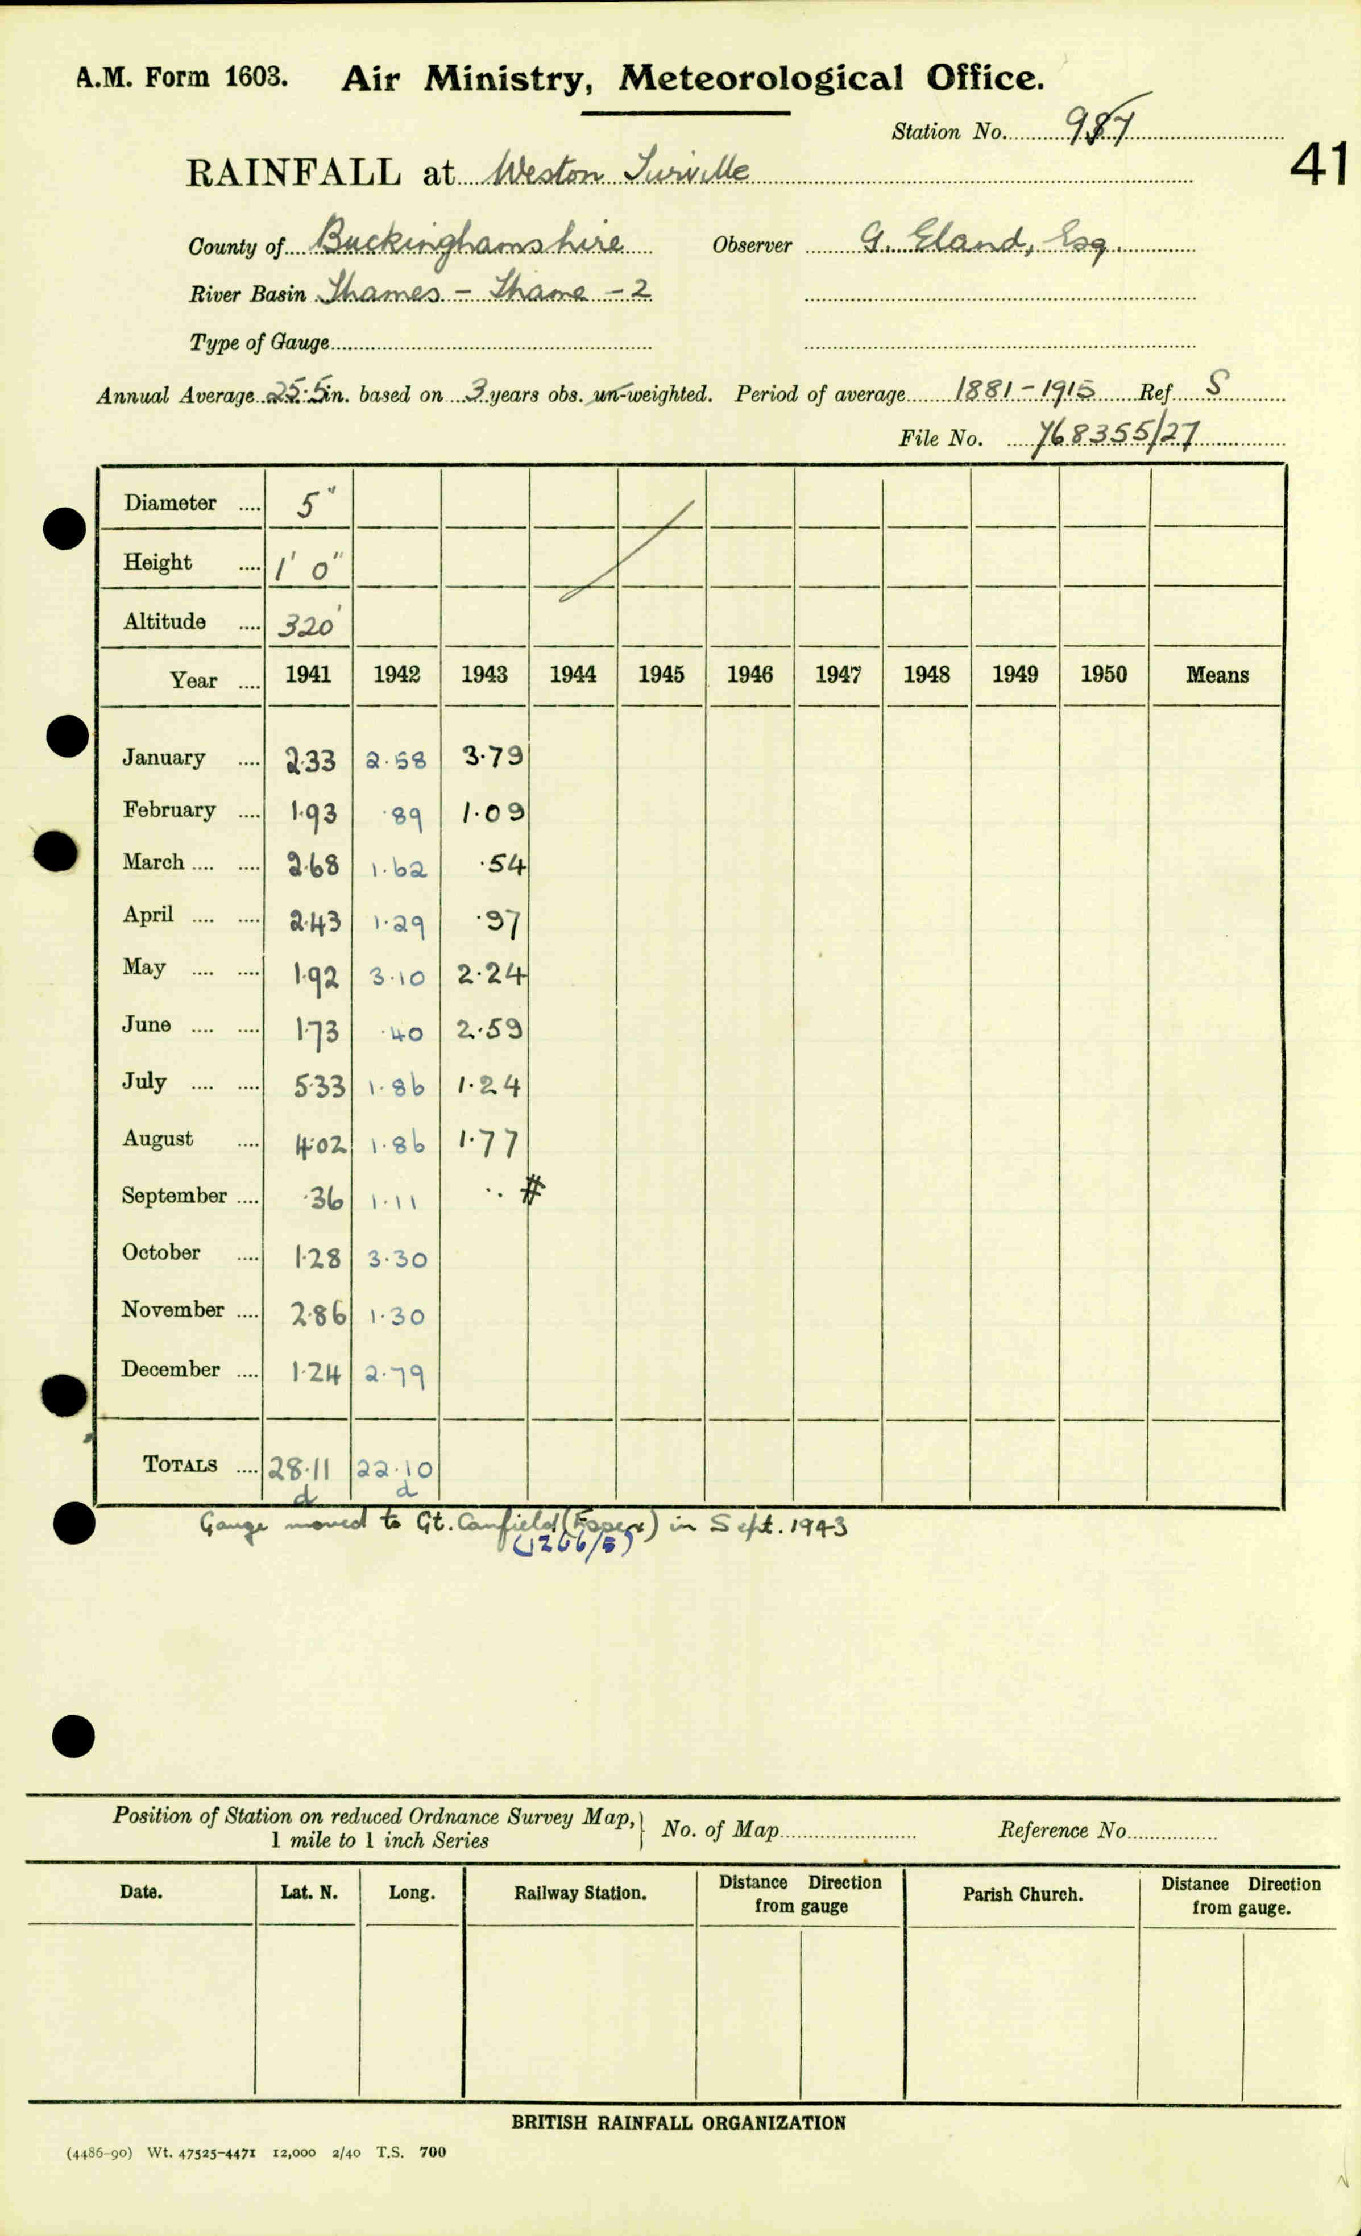 A.M. Form 1603. Air Ministry, Meteorological Office.
Station No. 987
41
RAINFALL at Weston Turville
County of Buckinghamshire Observer G. Eland, Esq.
River Basin Thames - Thame - 2
Type of Gauge
Annual Average 25.5 in. based on 3 years obs. un-weighted. Period of average 1881-1915 Ref S
File No. 768355/27
Diameter .... 5"
Height .... 1' 0"
Altitude .... 320'
Year .... 1941 1942 1943 1944 1945 1946 1947 1948 1949 1950 Means
January .... 2.33 2.58 3.79
February .... 1.93 .89 1.09
March .... .... 2.68 1.62 .54
April .... .... 2.43 1.29 .97
May .... .... 1.92 3.10 2.24
June .... .... 1.73 .40 2.59
July .... .... 5.33 1.86 1.24
August .... 4.02 1.86 1.77
September .... .36 1.11 .. #
October .... 1.28 3.30
November .... 2.86 1.30
December .... 1.24 2.79
TOTALS .... 28.11 22.10
d d
Gauge moved to Gt. Canfield (Essex) in Sept. 1943
(1266/5)
Position of Station on reduced Ordnance Survey Map, 1 mile to 1 inch Series } No. of Map Reference No.
Date. Lat. N. Long. Railway Station. Distance Direction from gauge Parish Church. Distance Direction from gauge.
BRITISH RAINFALL ORGANIZATION
(4486-90) Wt. 47525-4471 12,000 2/40 T.S. 700